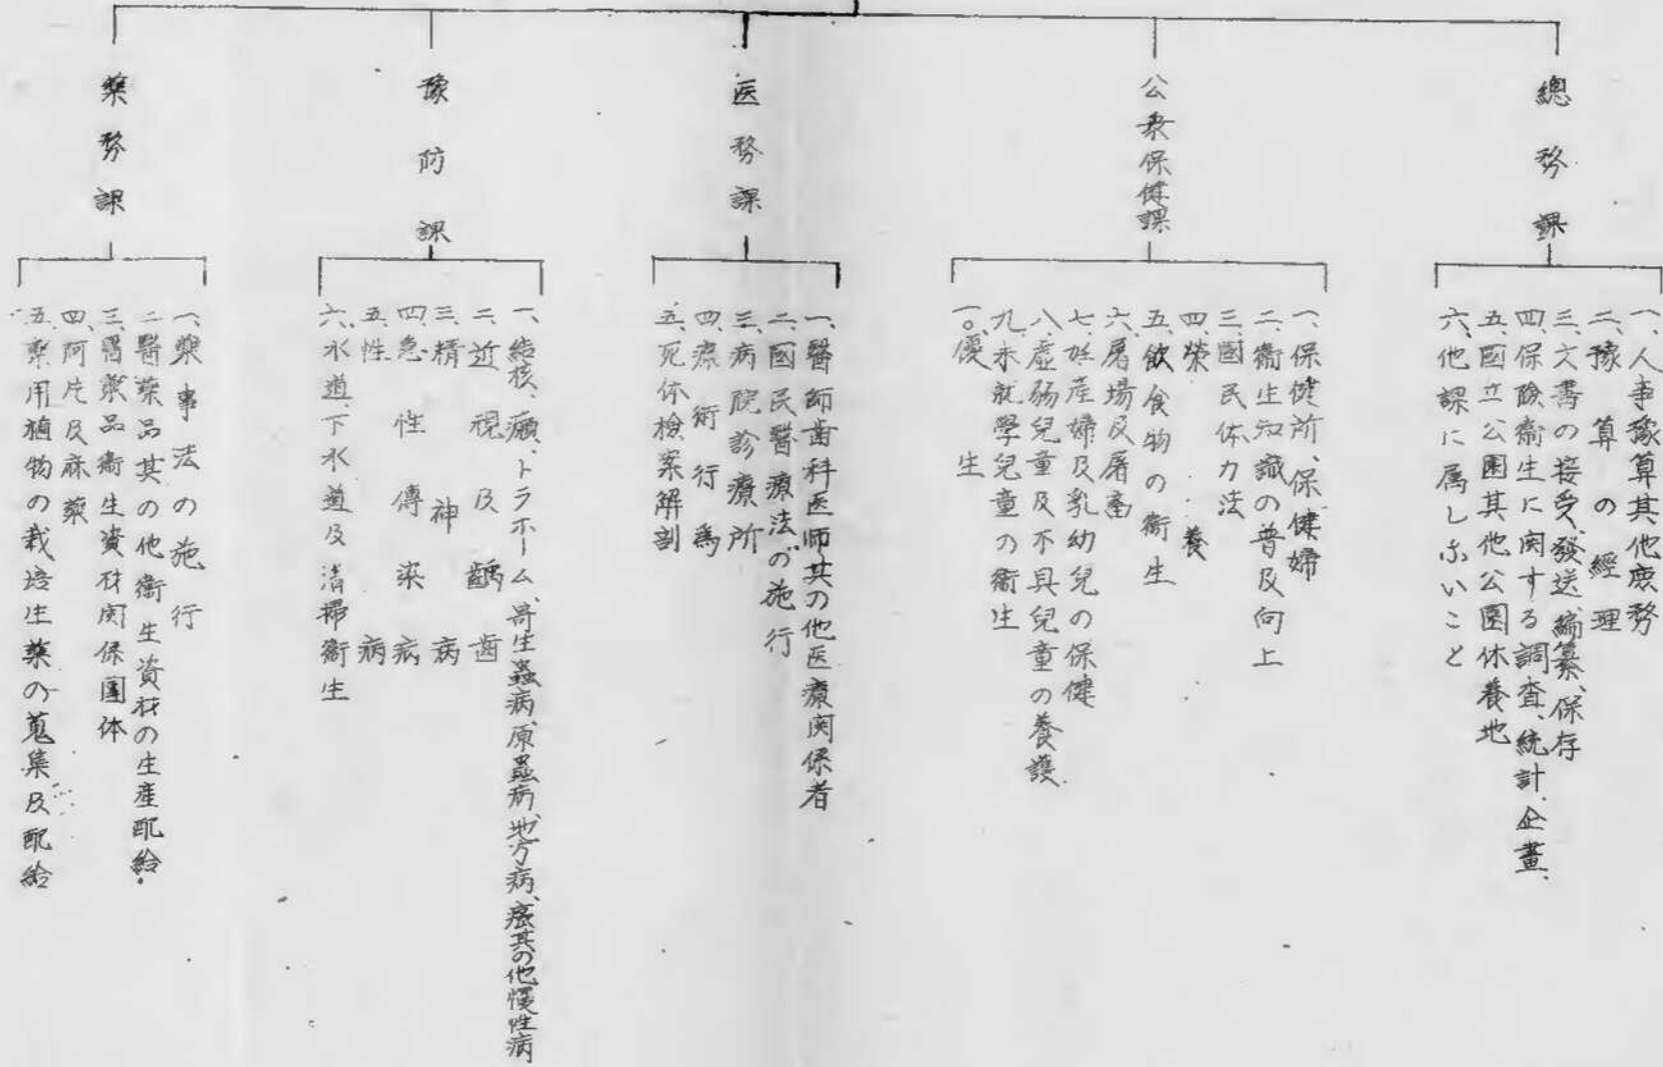 總務課
一、人事豫算其他庶務
二、豫算の經理
三、文書の接受、發送、編纂、保存
四、保險衞生に関する調査、統計、企畫、
五、國立公園其他公園休養地
六、他課に属しないこと
公衆保健課
一、保健所、保健婦
二、衞生知識の普及向上
三、國民体力法
四、榮養
五、飲食物の衞生
六、屠場及屠畜
七、姙産婦及乳幼兒の保健
八、虚弱兒童及不具兒童の養護
九、未就學兒童の衞生
一〇、優生
医務課
一、醫師齒科医師其の他医療関係者
二、國民醫療法の施行
三、病院診療所
四、療術行為
五、死体檢案解剖
豫防課
一、結核、癩、トラホーム、寄生蟲病、原蟲病、地方病、癌其の他慢性病
二、近視及齲齒
三、精神病
四、急性傳染病
五、性病
六、水道、下水道及淸掃衞生
藥務課
一、藥事法の施行
二、醫藥品其の他衞生資材の生産配給
三、醫藥品衞生資材関係團体
四、阿片及麻藥
五、藥用植物の栽培生藥の蒐集及配給